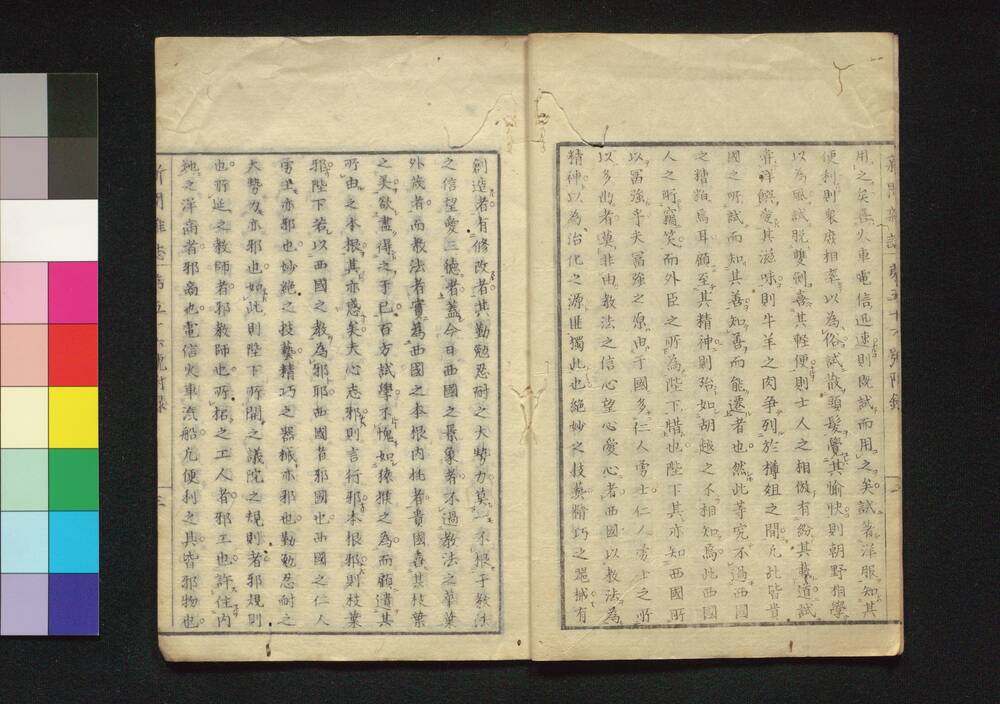 新聞雜誌 第五十六號附錄 二
用之矣喜火車電信迅速則既試而用之矣試著洋服知其
便利則衆庶相率以為俗試散頭髮覺其愉快則朝野相學
以為風試脫雙刀喜其輕便則士人之相傚有紛其載道試
嘗洋饌愛其滋味則牛羊之肉爭列於樽俎之間凡此皆貴
國之所試而知其善知善而能遷者也然此等究不過西国
之糟粕焉耳顧至其精神則殆如胡越之不相知焉此西国
人之所竊笑而外臣之所為陛下惜也陛下其亦知西國所
以富強乎夫富強之原由于國多仁人勇士仁人勇士之所
以多出者莫非由教法之信心望心愛心者西國以教法為
精神以為治化之源匪獨此也絕妙之技藝精巧之器械有
創造者有修改者其勤勉忍耐之大勢力莫一不根于教法
之信望愛三德者蓋今日西國之景象者不過教法之華葉
外茂者而教法者實為西國之本根內托者貴國喜其枝葉
之美欲盡得之于己百方試學不愧如猿猴之為而顧遺其
所由之本根其亦惑矣夫心志邪則言行邪本根邪則枝葉
邪陛下若以西國之教為邪耶西國者邪國也西國之仁人
勇士亦邪也妙絕之技藝精巧之器械亦邪也勤勉忍耐之
大勢力亦邪也如此則陛下所開之議院之規則者邪規則
也所延之教師者邪教師也所招之工人者邪工也許住內
地之洋商者邪商也電信火車汽船凡便利之具皆邪物也
新聞雜誌 第五十六號附錄 三